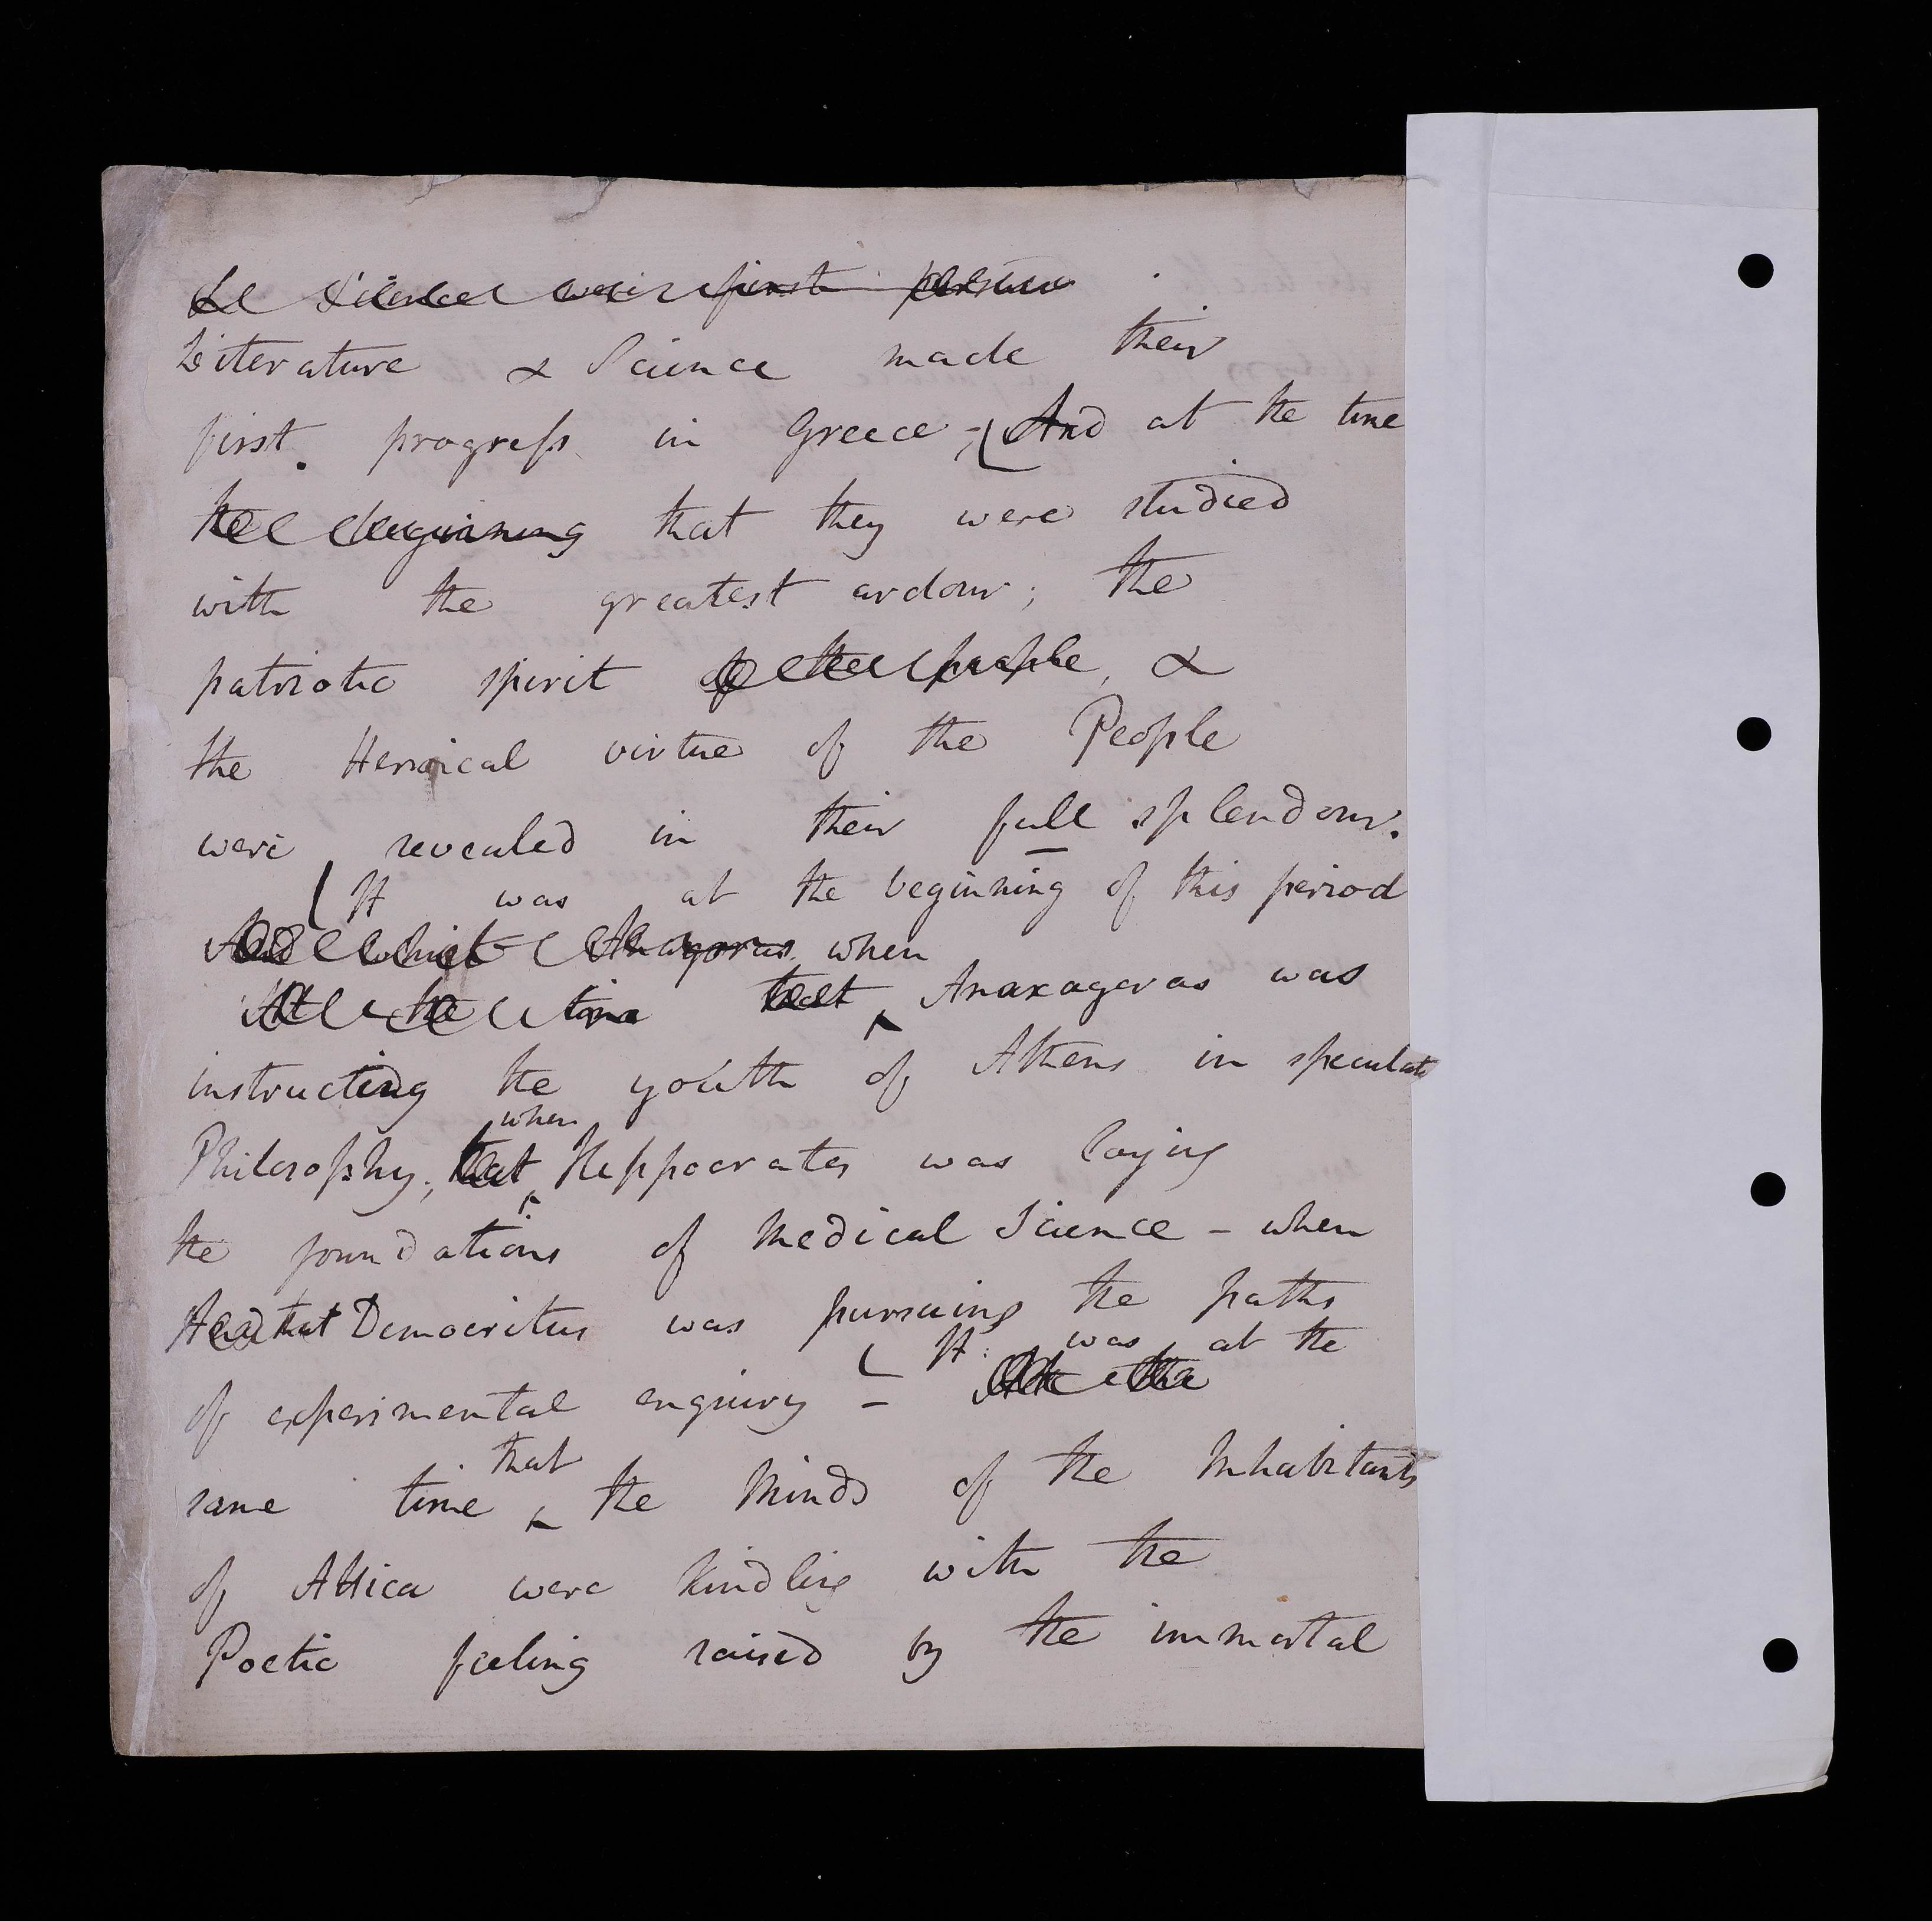 Science were first pursue
Literature & Science made their
first progress in Greece - And at the time
the beginning that they were studied
with the greatest ardour; the
patriotic spirit of the people, &
the Heroical virtue of the People
were revealed in their full splendour.
It was at the beginning of this period
And which Anagoras when
At the time that Anaxagoras was
instructing the youth of Athens in speculat
Philosophy; that when Heppocrates was laying
the foundations of Medical Science - when
And that Democritus was pursuing the paths
It was at the
of experimental enquiry - At the
same time that the Minds of the Inhabitants
of Attica were kindling with the
Poetic feeling raised by the immortal